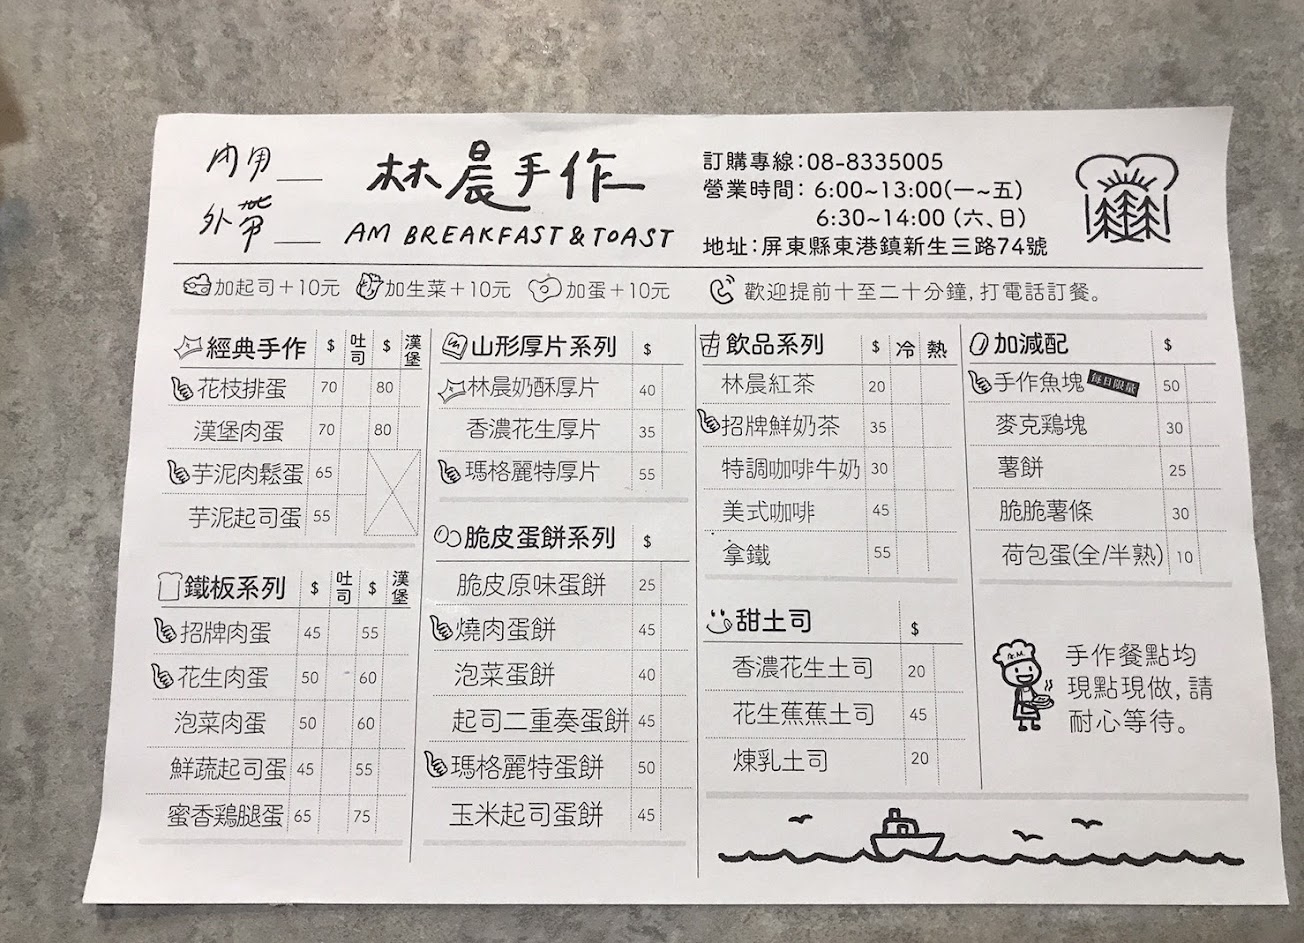 內用
外帶
林晨手作
AM BREAKFAST & TOAST
訂購專線：08-8335005
營業時間：6:00~13:00(一~五)
6:30~14:00（六、日)
地址：屏東縣東港鎮新生三路74號
加起司＋10元 加生菜＋10元 加蛋＋10元
歡迎提前十至二十分鐘，打電話訂餐。
經典手作 $ 吐司 $ 漢堡
花枝排蛋 70 80
漢堡肉蛋 70 80
芋泥肉鬆蛋 65
芋泥起司蛋 55
鐵板系列 $ 吐司 $ 漢堡
招牌肉蛋 45 55
花生肉蛋 50 60
泡菜肉蛋 50 60
鮮蔬起司蛋 45 55
蜜香鶏腿蛋 65 75
山形厚片系列 $
林晨奶酥厚片 40
香濃花生厚片 35
瑪格麗特厚片 55
脆皮蛋餅系列 $
脆皮原味蛋餅 25
燒肉蛋餅 45
泡菜蛋餅 40
起司二重奏蛋餅 45
瑪格麗特蛋餅 50
玉米起司蛋餅 45
飲品系列 $ 冷 熱
林晨紅茶 20
招牌鮮奶茶 35
特調咖啡牛奶 30
美式咖啡 45
拿鐵 55
甜土司 $
香濃花生土司 20
花生蕉蕉土司 45
煉乳土司 20
加減配 $
手作魚塊 每日限量 50
麥克鶏塊 30
薯餅 25
脆脆薯條 30
荷包蛋(全/半熟) 10
A.M.
手作餐點均
現點現做，請
耐心等待。